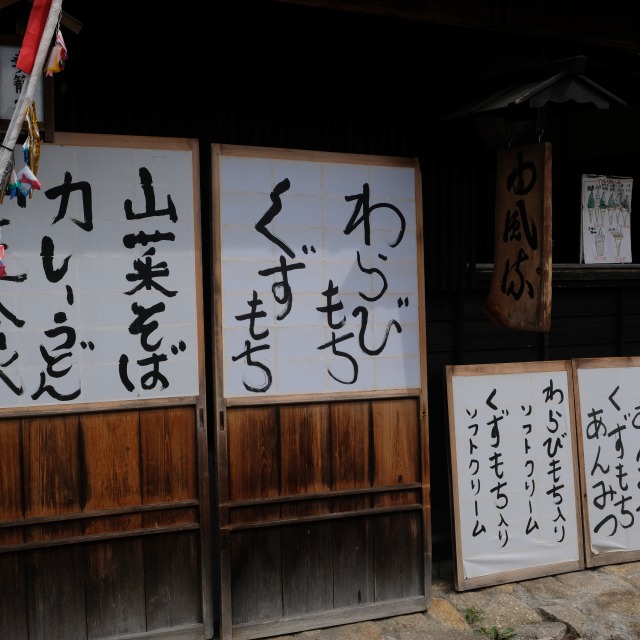 わらびもち
くずもち
山菜そば
カレーうどん
わらびもち入り
ソフトクリーム
くずもち入り
ソフトクリーム
くずもち
あんみつ